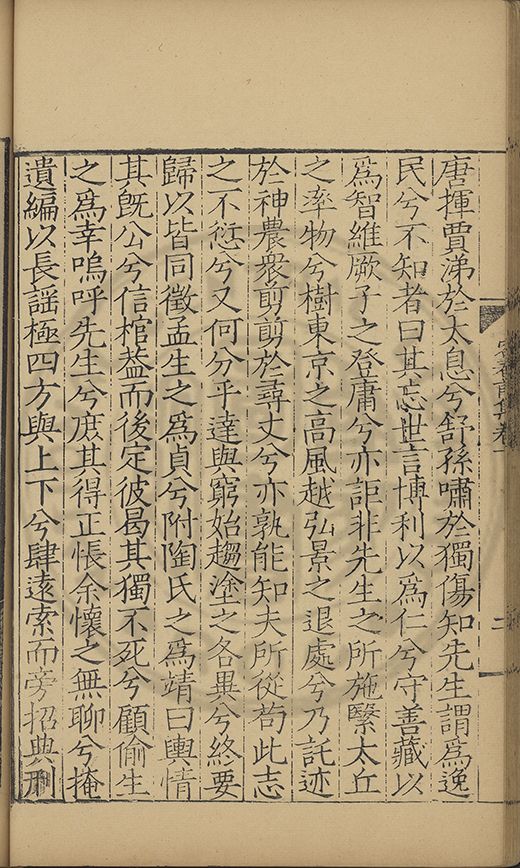 唐揮賈涕於太息兮舒孫嘯於獨傷知先生謂爲逸
民兮不知者曰其忘世言博利以爲仁兮守善藏以
爲智維厥子之登庸兮亦詎非先生之所施繄太丘
之率物兮樹東京之高風越弘景之退處兮乃託迹
於神農衆剪剪於尋丈兮亦孰能知夫所從苟此志
之不愆兮又何分乎達與窮始趨塗之各異兮終要
歸以皆同徵孟生之爲貞兮附陶氏之爲靖曰輿情
其旣公兮信棺蓋而後定彼曷其獨不死兮顧偷生
之爲幸嗚呼先生兮庶其得正悵余懷之無聊兮掩
遺編以長謡極四方與上下兮肆遠索而旁招典刑
卷一
二